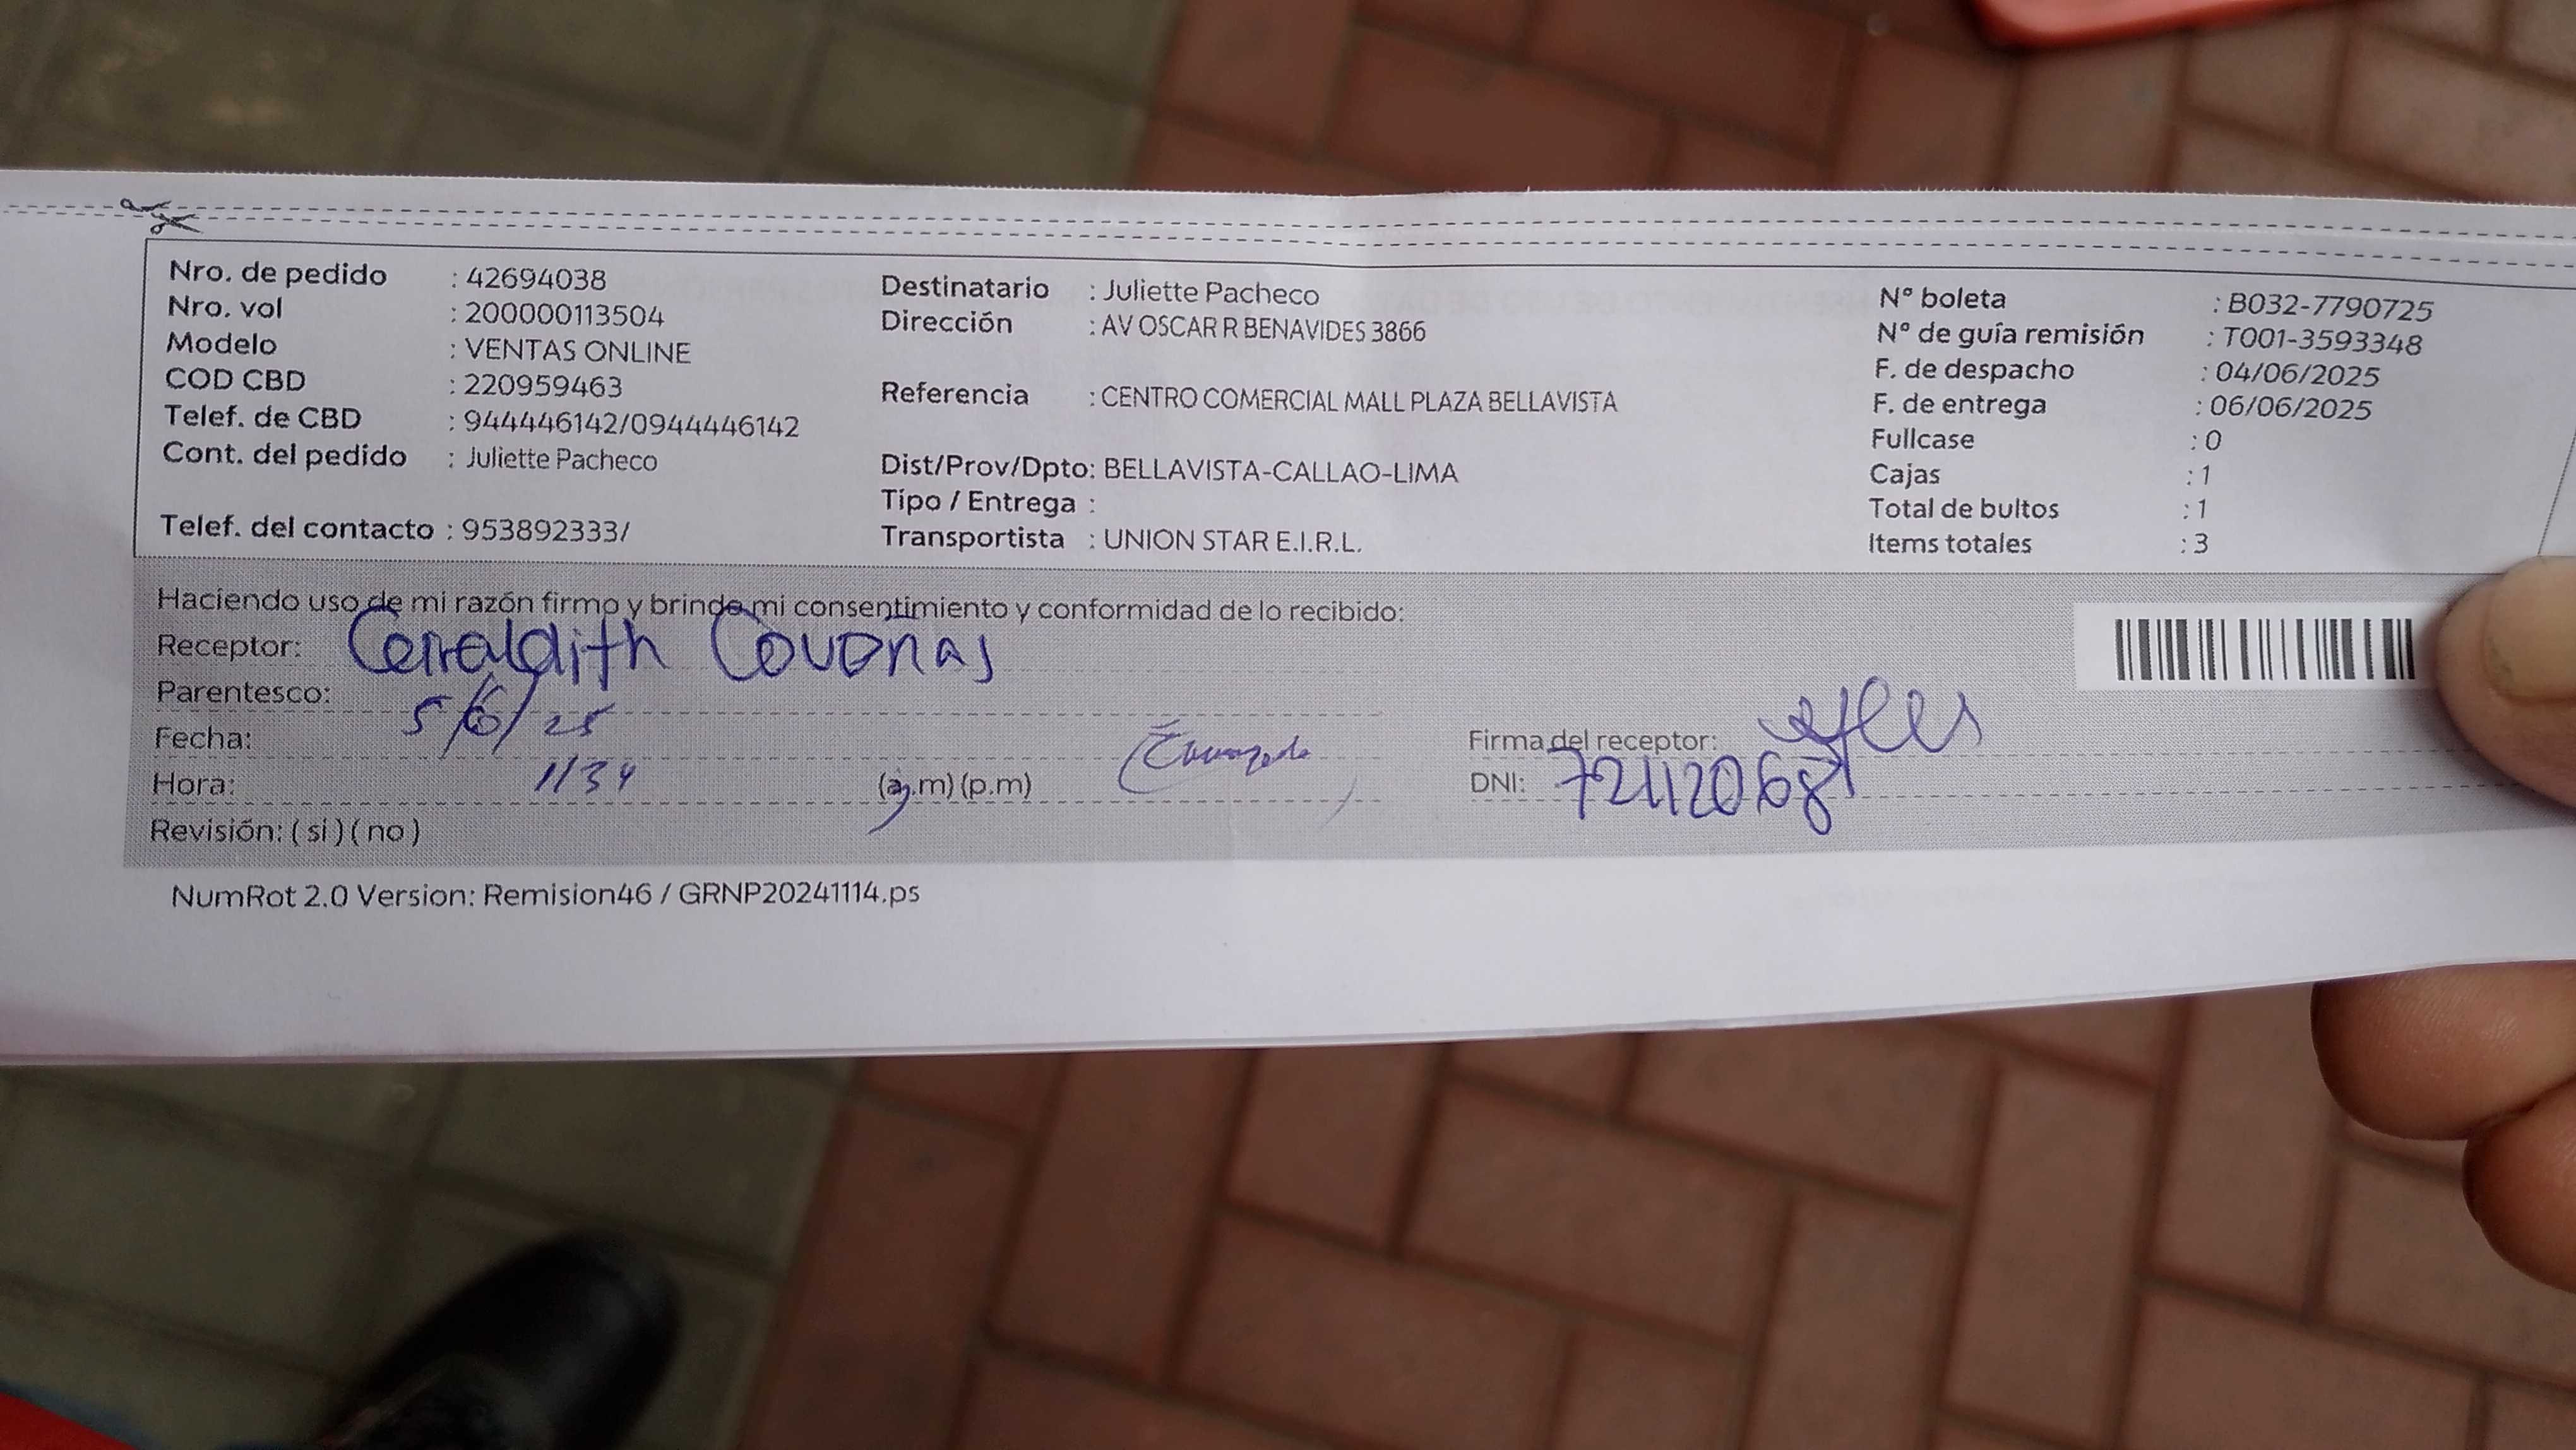 Nro. de pedido : 42694038
Nro. vol : 200000113504
Modelo : VENTAS ONLINE
COD CBD : 220959463
Telef. de CBD : 944446142/0944446142
Cont. del pedido : Juliette Pacheco
Telef. del contacto : 953892333/
Destinatario : Juliette Pacheco
Dirección : AV OSCAR R BENAVIDES 3866
Referencia : CENTRO COMERCIAL MALL PLAZA BELLAVISTA
Dist/Prov/Dpto: BELLAVISTA-CALLAO-LIMA
Tipo / Entrega :
Transportista : UNION STAR E.I.R.L.
N° boleta : B032-7790725
N° de guía remisión : T001-3593348
F. de despacho : 04/06/2025
F. de entrega : 06/06/2025
Fullcase : 0
Cajas : 1
Total de bultos : 1
Items totales : 3
Haciendo uso de mi razón firmo y brindo mi consentimiento y conformidad de lo recibido:
Receptor: Geraldith
Parentesco:
Fecha: 5/6/25
Hora: 1/34 (a.m) (p.m)
Revisión: ( si ) ( no )
Firma del receptor:
DNI: 72112068
NumRot 2.0 Version: Remision46 / GRNP20241114.ps